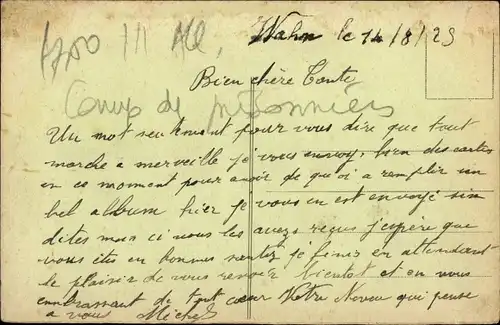 1700 III All.
Wahn le 14/8/23
Bien chère Tante
Camp de prisonniers
Un mot seulement pour vous dire que tout
marche a merveille je vous envoy, bien des cartes
en ce moment pour avoir de quoi a remplir un
bel album hier je vous en est envoyé sin
dites mois ci vous les avez reçus j'espère que
vous êtes en bonnes santez je finis en attendant
le plaisir de vous revoir bientot et en vous
embrassant de tout cœur Votre Neveu qui pense
a vous Michel